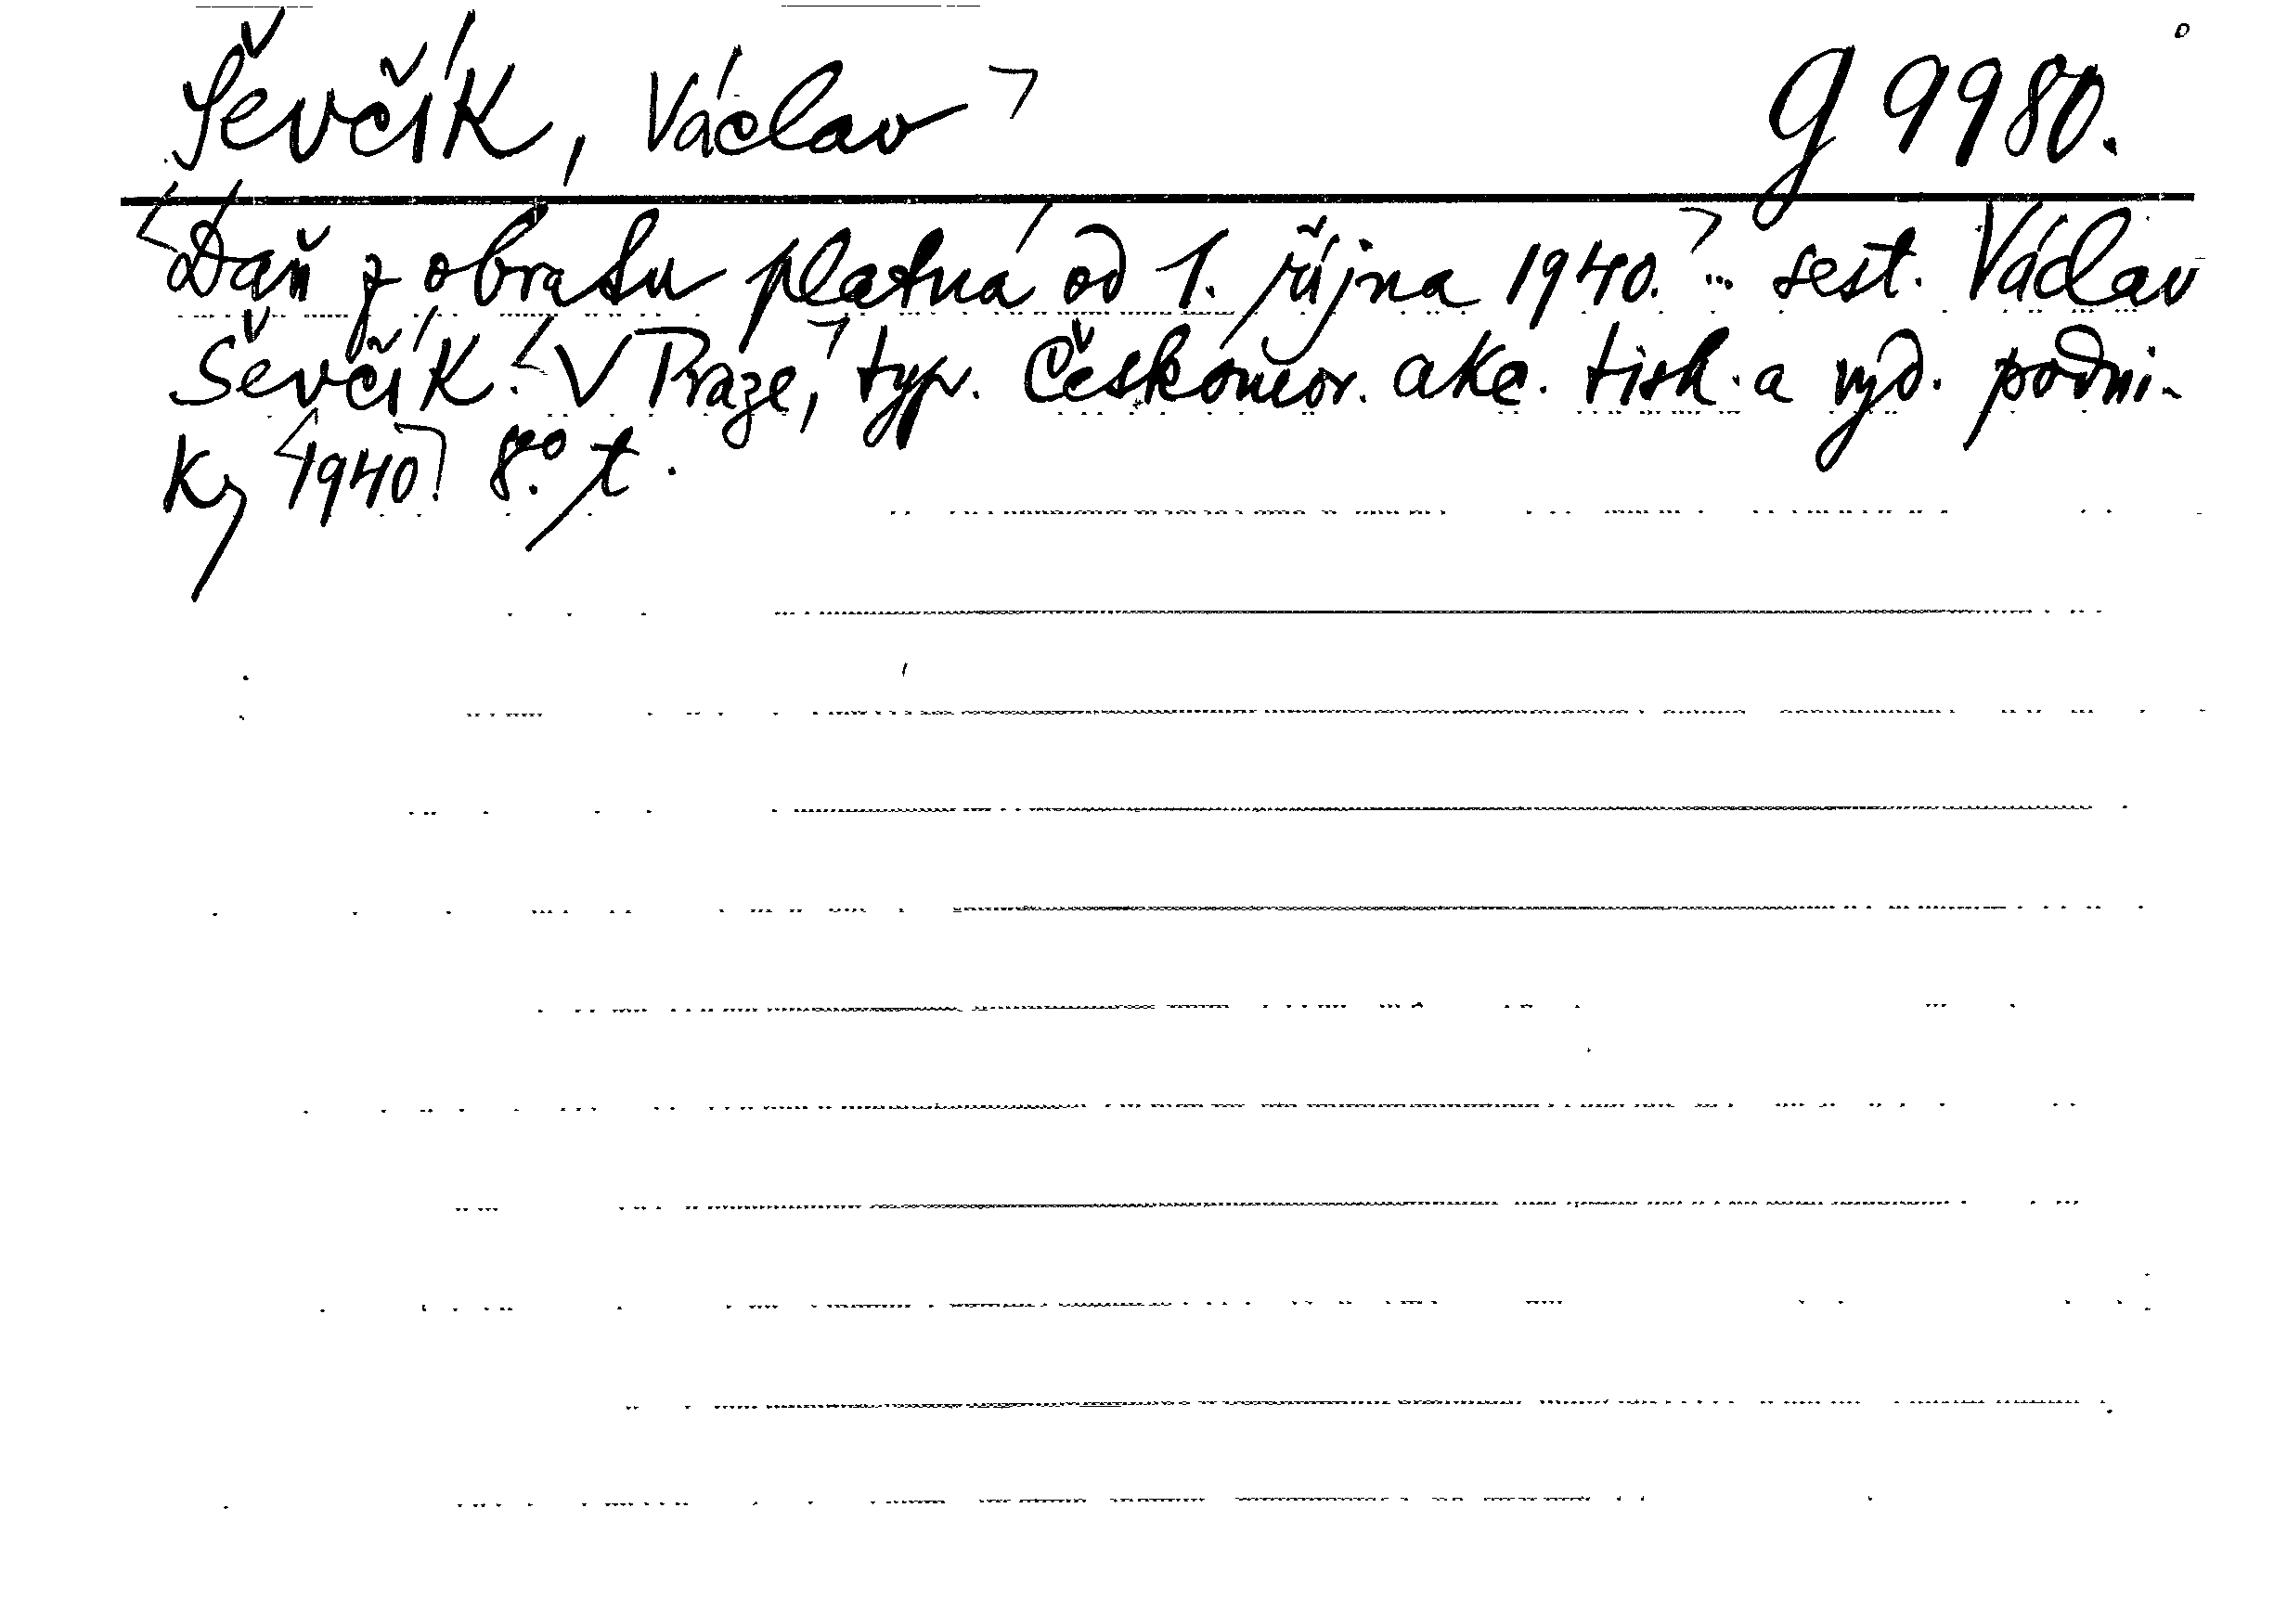 Ševčík, Václav G 9980.
Daň z obratu platná od 1. října 1940. ... sest. Václav
Ševčík. V Praze, typ. Českomor. akc. tisk. a vyd. podni-
ky 1940. 8° t.